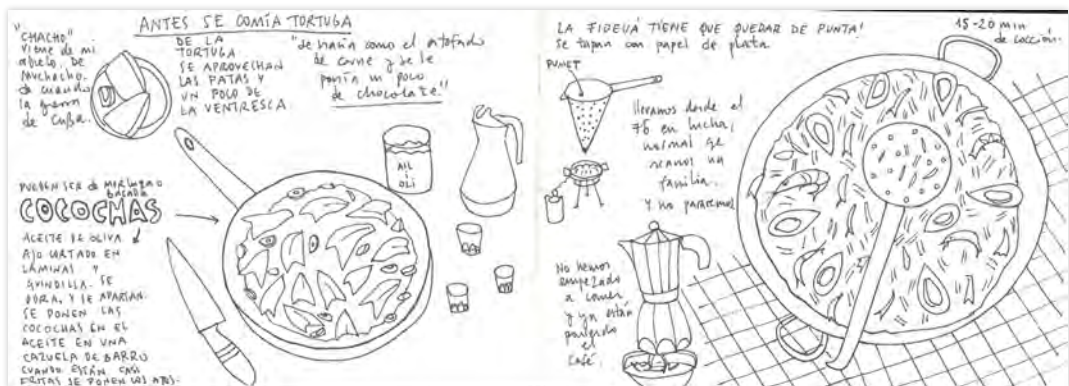 ANTES SE COMÍA TORTUGA
"CHACHO"
Viene de mi
abuelo, de
Muchacho.
de cuando
la guerra
de Cuba.
DE LA
TORTUGA
SE APROVECHAN
LAS PATAS Y
UN POCO DE
LA VENTRESCA.
"Se hacía como el estofado
de carne y se le
ponía un poco
de chocolate"
ALL
i
OLI
PUEDEN SER de MERLUZA O
BACALAO
COCOCHAS
ACEITE DE OLIVA
AJO CORTADO EN
LÁMINAS Y
GUINDILLA. SE
DORA, Y SE APARTAN.
SE PONEN LAS
COCOCHAS EN EL
ACEITE EN UNA
CAZUELA DE BARRO
CUANDO ESTÁN CASI
FRITAS SE PONEN LOS AJOS.
LA FIDEUÁ TIENE QUE QUEDAR DE PUNTA!
Se tapan con papel de plata.
15-20 min
de cocción.
llevamos desde el
76 en lucha,
normal que
seamos un
familia.
Y no pararemos
No hemos
empezado
a comer
y ya están
poniendo
el
café.